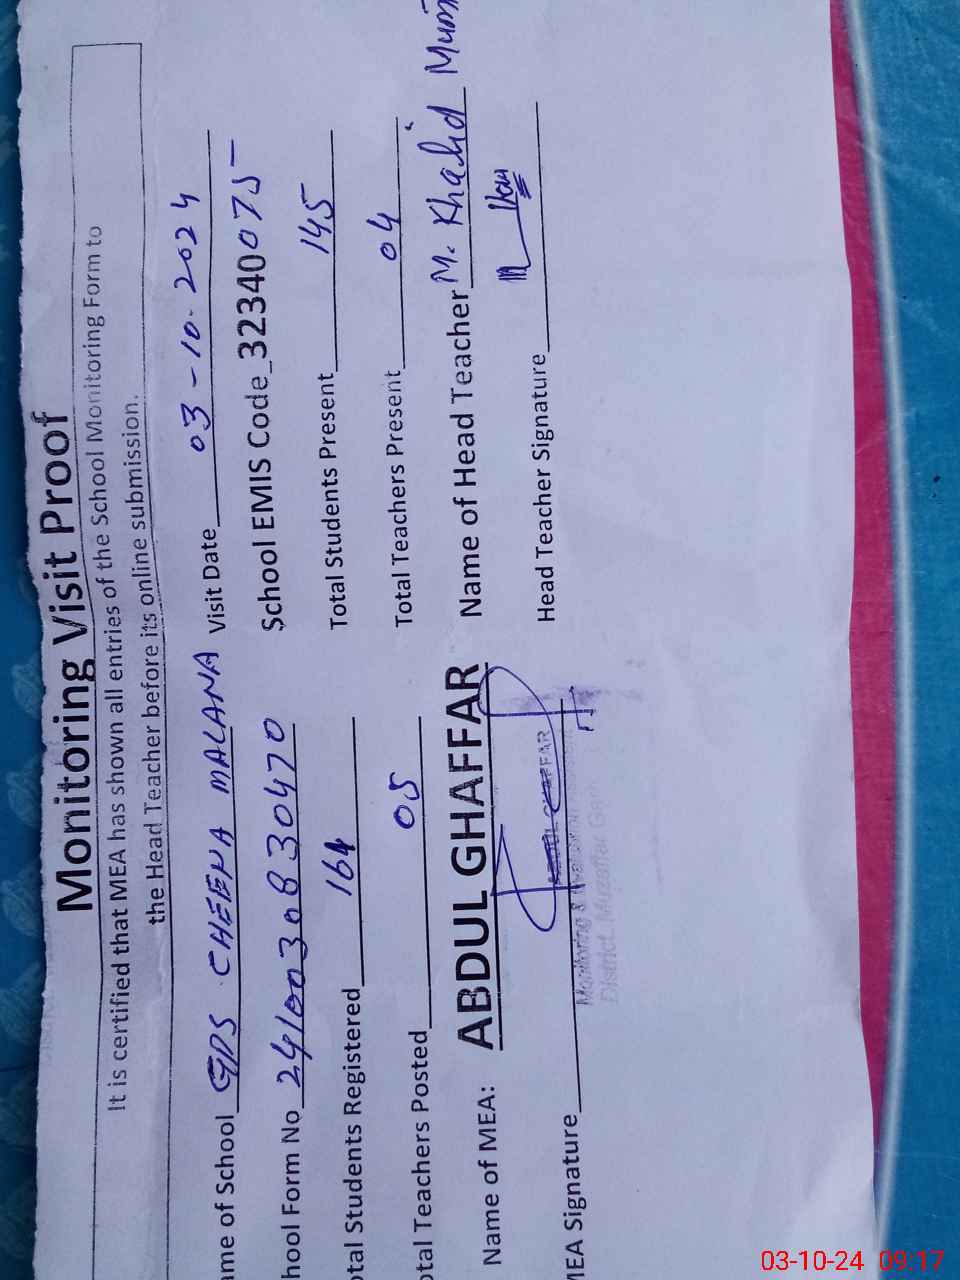 Monitoring Visit Proof
It is certified that MEA has shown all entries of the School Monitoring Form to
the Head Teacher before its online submission.
ame of School GPS CHEENA MALANA Visit Date 03-10-2024
hool Form No 24100308 30470 School EMIS Code 32340075
otal Students Registered 164 Total Students Present 145
otal Teachers Posted 05 Total Teachers Present 04
Name of MEA: ABDUL GHAFFAR Name of Head Teacher M. Khalid
MEA Signature Head Teacher Signature
ABDUL GHAFFAR
Monitoring &
District. Muzaffar Garh
03-10-24 09:17